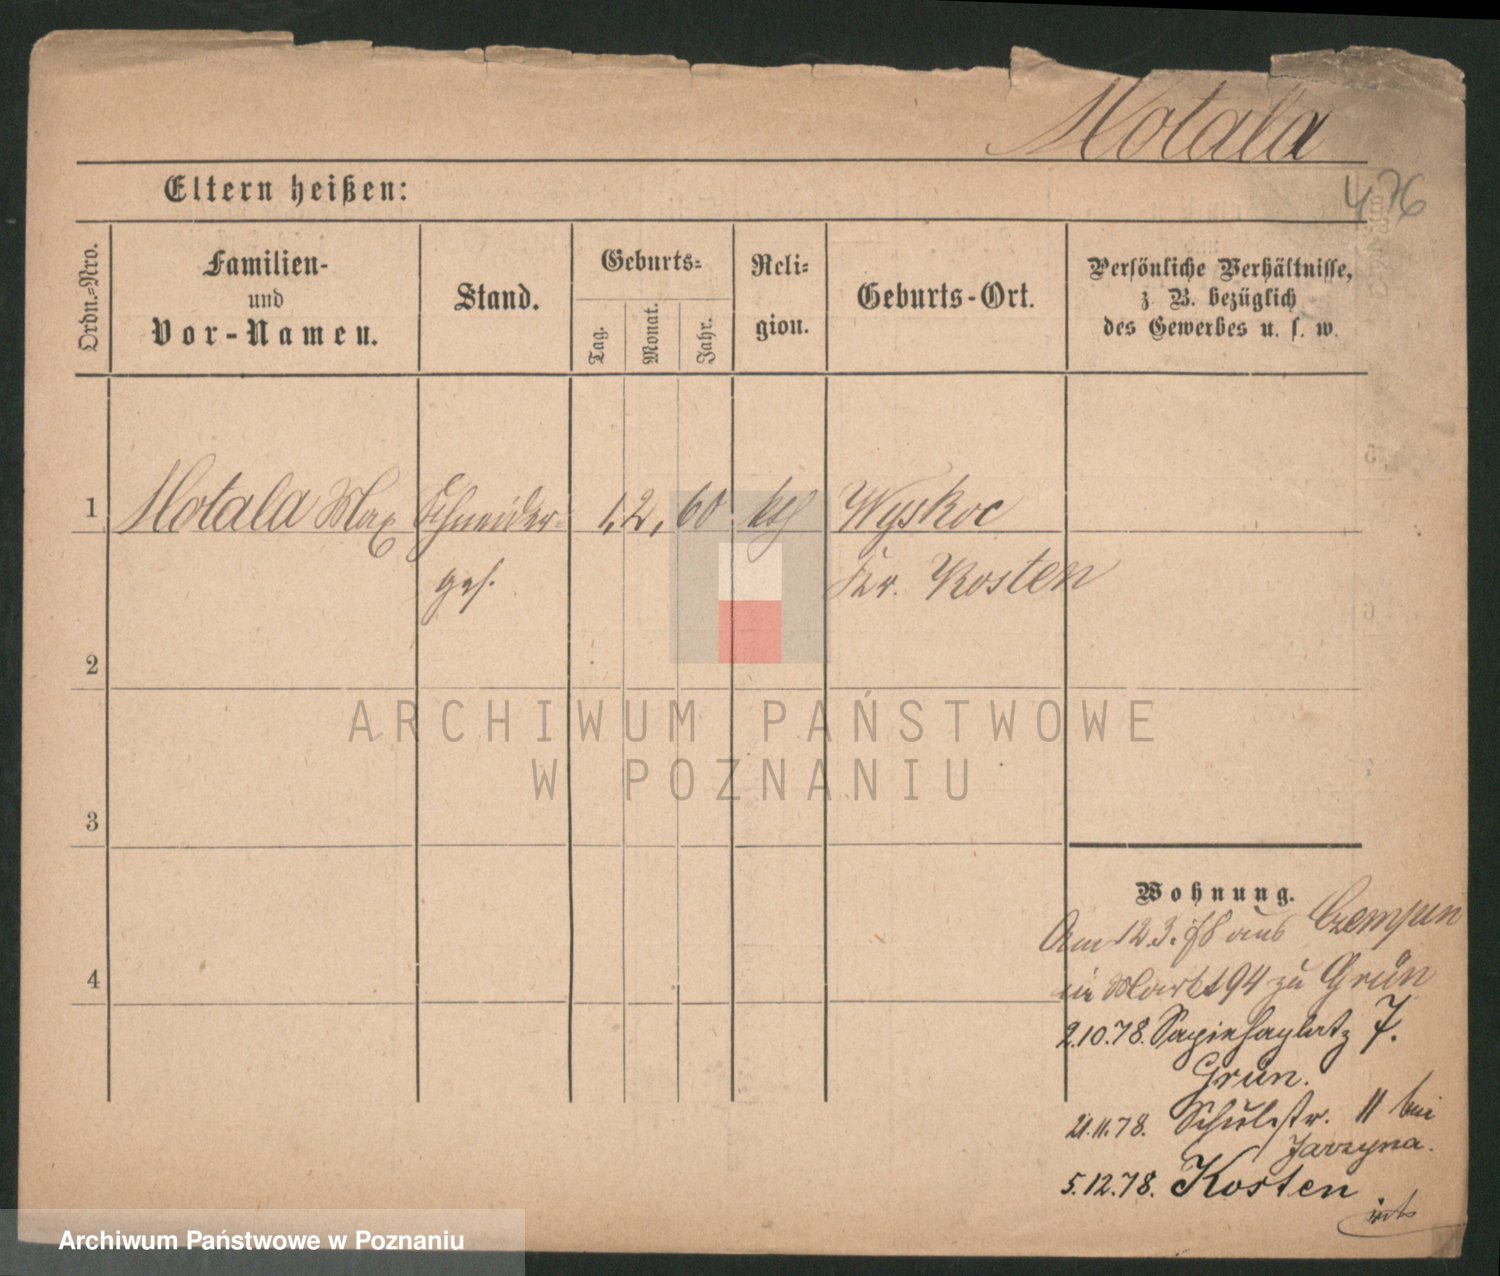 Motala
Eltern heißen:
476
Ordn.-Nro.
Familien-
und
Vor-Namen.
Stand.
Geburts-
Tag.
Monat.
Jahr.
Reli-
gion.
Geburts-Ort.
Persönliche Verhältnisse,
z B. bezüglich
des Gewerbes u. s. w.
1 Motala Max Schneider- 1, 2, 60 kth Wyskoc
ges. Kr. Kosten
2
ARCHIWUM PAŃSTWOWE
W POZNANIU
3
Wohnung.
Am 12 3. 78 aus Czempin
4
Markt 94 zu Grün
2.10.78. Sapiehaplatz 7.
Grün.
21.11.78. Schulstr. 11 bei
Jarzyna.
5.12.78. Kosten
Archiwum Państwowe w Poznaniu